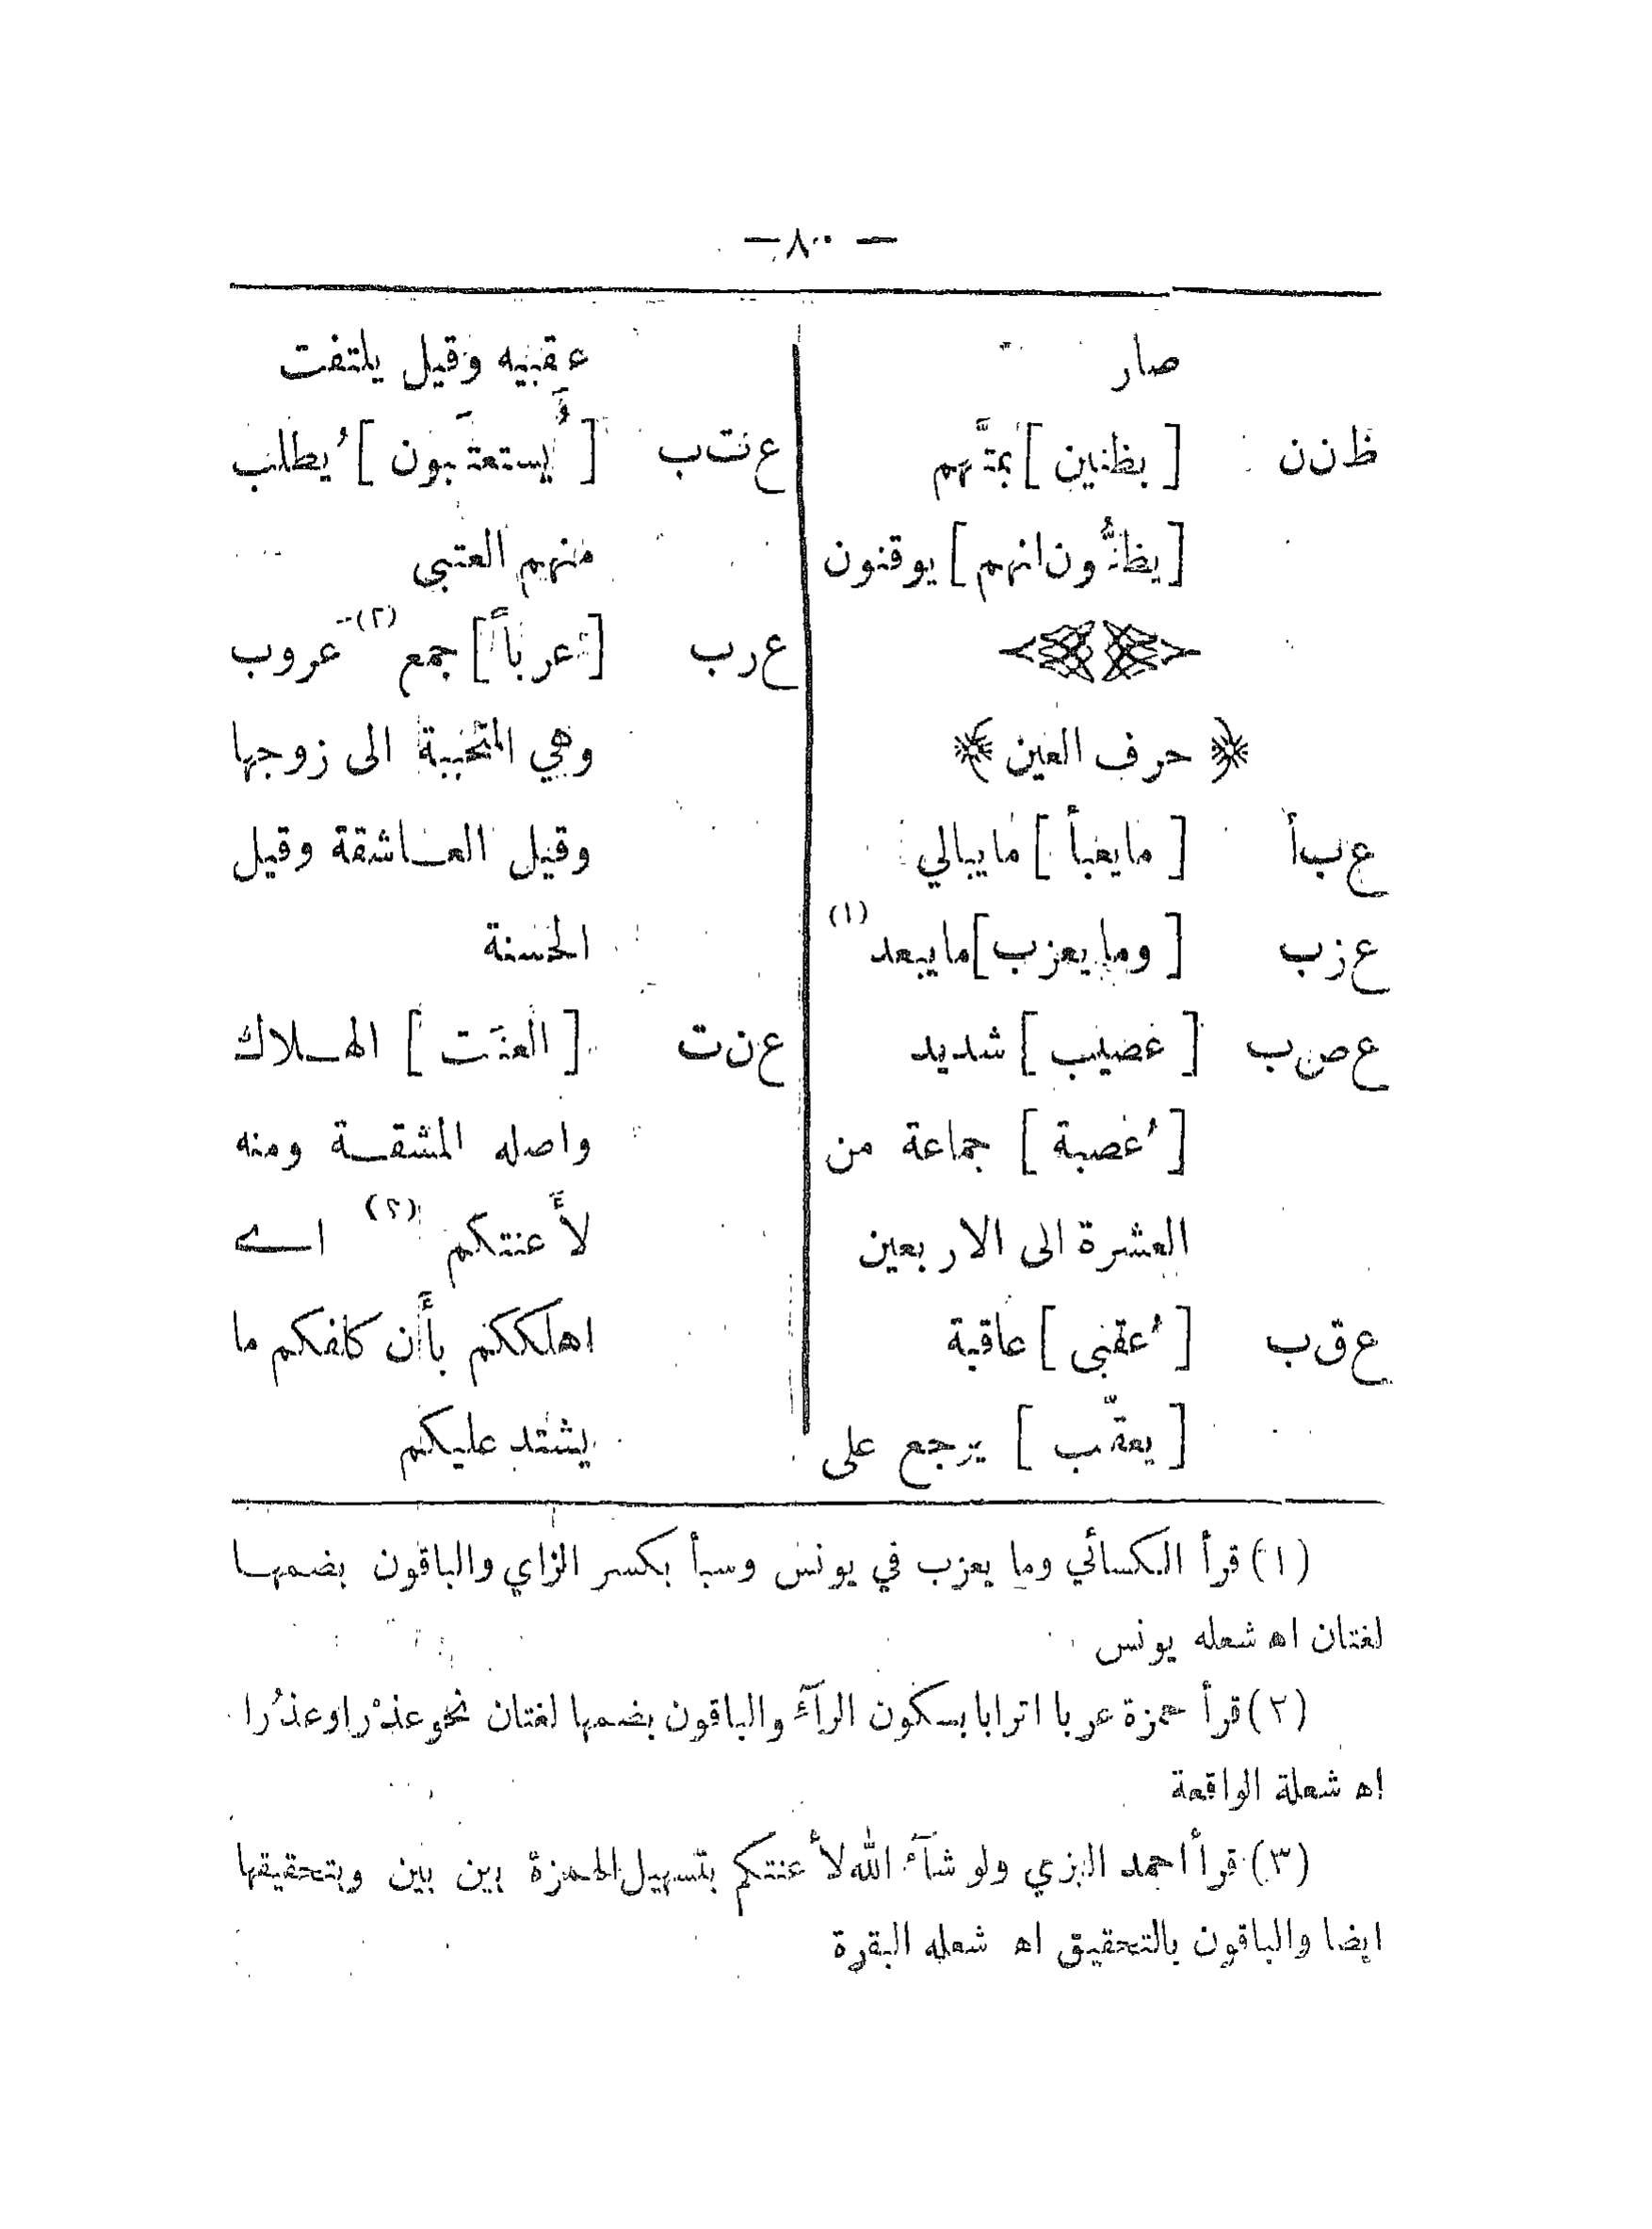 — ٨٠ —
صار
ظ ن ن [ بظنين ] بمتَّهم
[ يظنُّون انهم ] يوقنون
﴿ حرف العين ﴾
ع ب أ [ ما يعبأ ] ما يبالي
ع ز ب [ وما يعزب ] ما يبعد (١)
ع ص ب [ عصيب ] شديد
[ عُصبة ] جماعة من
العشرة الى الاربعين
ع ق ب [ عُقبى ] عاقبة
[ يعقّب ] يرجع على
عقبيه وقيل يلتفت
ع ت ب [ يُستعتَبون ] يُطلب
منهم العتبى
ع ر ب [ عرباً ] جمع (٢) عروب
وهي المتحببة الى زوجها
وقيل العـاشقة وقيل
الحسنة
ع ن ت [ العنَت ] الهـلاك
واصله المشقـة ومنه
لأعنتكم (٢) اے
اهلككم بأن كلفكم ما
يشتد عليكم
(١) قرأ الكسائي وما يعزب في يونس وسبأ بكسر الزاي والباقون بضمهـا
لغتان اه شعله يونس
(٢) قرأ حمزة عربا اترابا بسكون الرآء والباقون بضمها لغتان نحو عذْرا وعذُرا
اه شعلة الواقعة
(٣) قرأ احمد البزي ولو شآء الله لأعنتكم بتسهيل الهمزة بين بين وبتحقيقها
ايضا والباقون بالتحقيق اه شعله البقرة